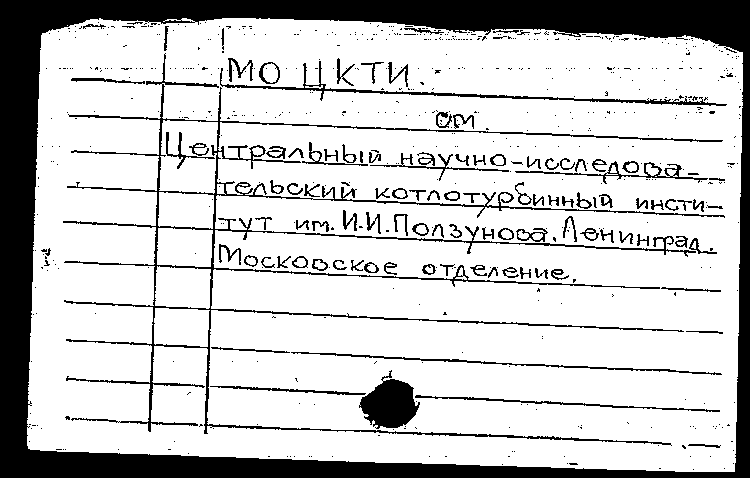 МО ЦКТИ.
см.
Центральный научно-исследова-
тельский котлотурбинный инсти-
тут им. И.И.Ползунова. Ленинград.
Московское отделение.